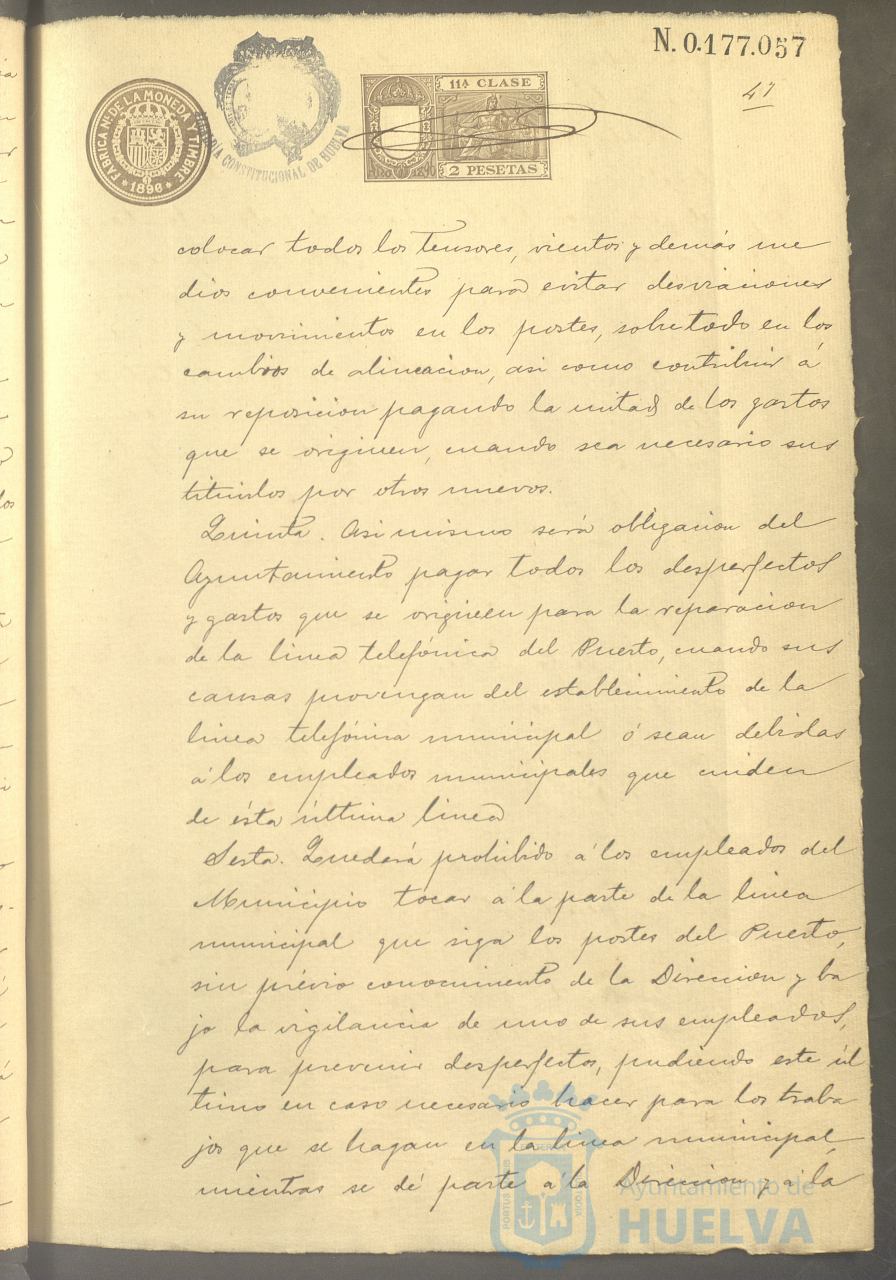 N. 0.177.057
47
FABRICA NL DE LA MONEDA Y TIMBRE
* 1896 *
CONSTITUCIONAL DE HUELVA
11ª CLASE
2 PESETAS
colocar todos los tensores, vientos y demás me
dios convenientes para evitar desviaciones
y movimientos en los postes, sobre todo en los
cambios de alineacion, asi como contribuir á
su reposicion pagando la mitad de los gastos
que se originen, cuando sea necesario sus
tituirlos por otros nuevos.
Quinta. Asi mismo será obligacion del
Ayuntamiento pagar todos los desperfectos
y gastos que se originen para la reparacion
de la linea telefónica del Puerto, cuando sus
causas provengan del establecimiento de la
linea telefónica municipal ó sean debidas
á los empleados municipales que cuiden
de ésta última linea
Sesta. Quedará prohibido á los empleados del
Municipio tocar á la parte de la linea
municipal que siga los postes del Puerto,
sin prévio conocimiento de la Direccion y ba
jo la vigilancia de uno de sus empleados,
para prevenir desperfectos, pudiendo este úl
timo en caso necesario hacer para los traba
jos que se hagan en la linea municipal,
mientras se dé parte á la Direccion y á la
Ayuntamiento de
HUELVA